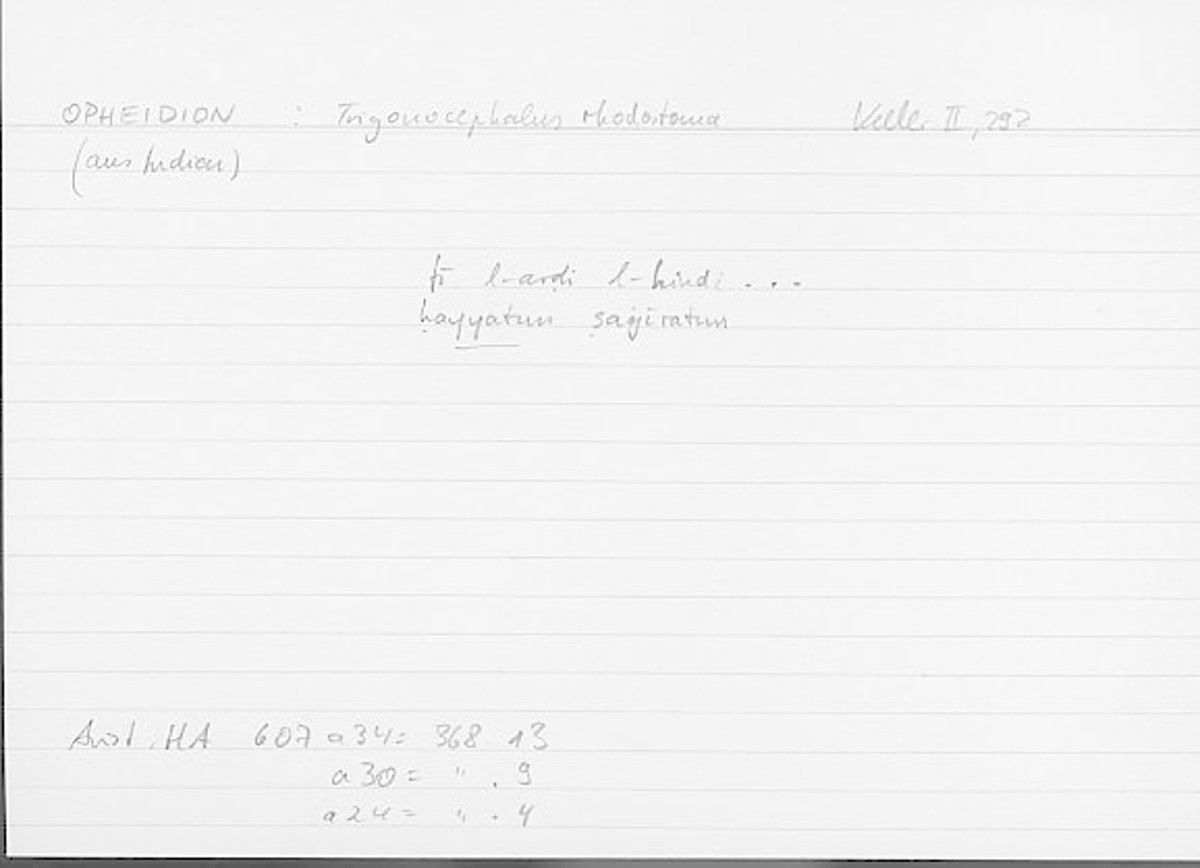 OPHEIDION : Trigonocephalus rhodostoma Keller II, 292
(aus Indien)
fī l-arḍi l-hindi . . .
ḥayyatun ṣaġīratun
Arist. HA 607 a 34 = 368 13
a 30 = " . 9
a 24 = " . 4